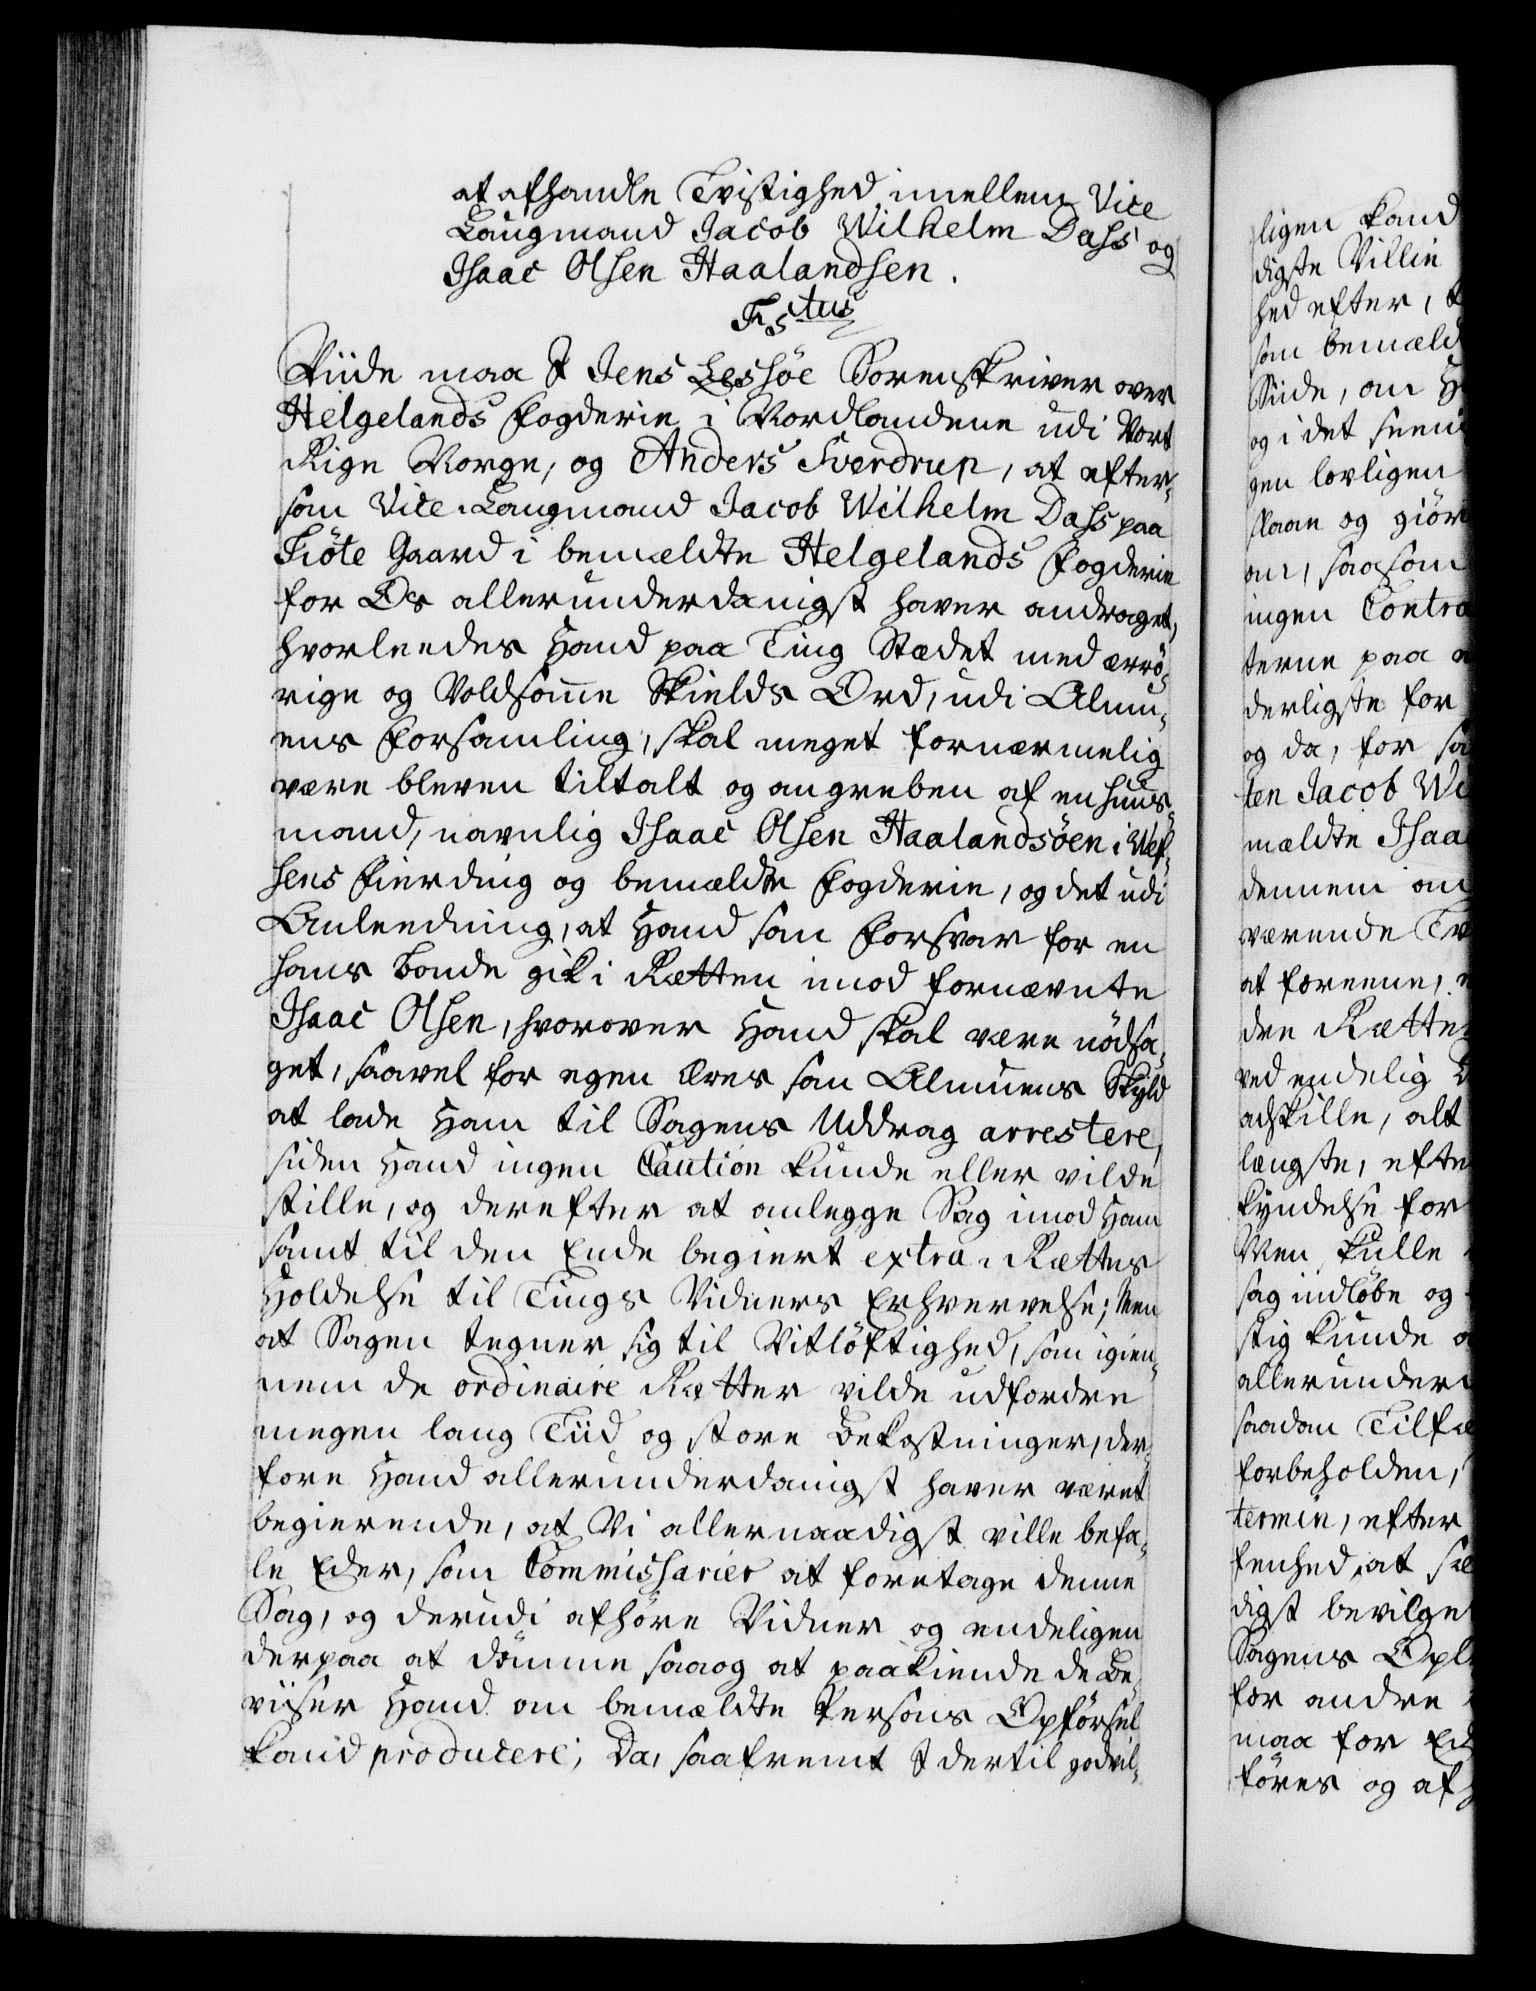 at afhandle Tvistighed imellem Vice
Laugmand Jacob Wilhelm Dass og
Isaac Olsen Haalandsen.
Fr. 5tus
Viide maa I Jens Lessøe Sorenskriver over
Helgelands Fogderie i Nordlandene udi Vort
Rige Norge, og Anders Sverdrup, at efter-
som Vice-Laugmand Jacob Wilhelm Dass paa
Tiøte Gaard i bemældte Helgelands Fogderie
for Os allerunderdanigst haver andraget,
hvorleedes Hand paa Ting Stædet med ærrö-
rige og Voldsomme Skields Ord, udi Almu-
ens Forsamling, skal meget fornærmelig
være bleven tiltalt og angreben af en huus-
mand, navnlig Isaac Olsen Haalandsöen i Wef-
sens Fierding og bemældte Fogderie, og det udi
Anleedning, at Hand som Forsvar for en
hans Bonde gik i Rætten imod fornævnte
Isaac Olsen, hvorover Hand skal være nödsa-
get, saavel for egen Æres som Almuens Skyld
at lade Ham til Sagens Uddrag arrestere,
siden Hand ingen Caution kunde eller vilde
stille, og derefter at anlegge Sag imod Ham
samt til den Ende begiert extra-Rættes
Holdelse til Tings Vidners Erhvervelse; Men
at Sagen tegner sig til Vitlöftighed, som igien-
nem de ordinaire Rætter vilde udfordre
megen lang Tiid og store Bekostninger, der-
fore Hand allerunderdanigst haver været
begierende, at Vi allernaadigst ville befa-
le Eder, som Commissarier at foretage denne
Sag, og derudi afhöre Vidner og endeligen
derpaa at dömme saa og at paakiende de Be-
viiser Hand om bemældte Persons Opförsel
kand producere; Da, saafremt I dertil godvil-
ligen kand
digste Villie
hed efter,
som bemæld
Siide, om H
og i det seen
gen lovligen
staae og giör
om, saasom
ingen Contra
terne paa
derligste for
og da, for sa
ten Jacob Wi
mældte Isaa
dennem om
værende Tv
at foreene,
dre Rætte
ved endelig D
adskille, alt
længste, efte
kyndelse for
Men skulle
sag indløbe og
stig kunde
allerunder
saadan Tilfæ
forbeholden,
termin, efter
fenhed, at
digst bevilge
Sagens Opl
for andre
maa for Ed
föres og af